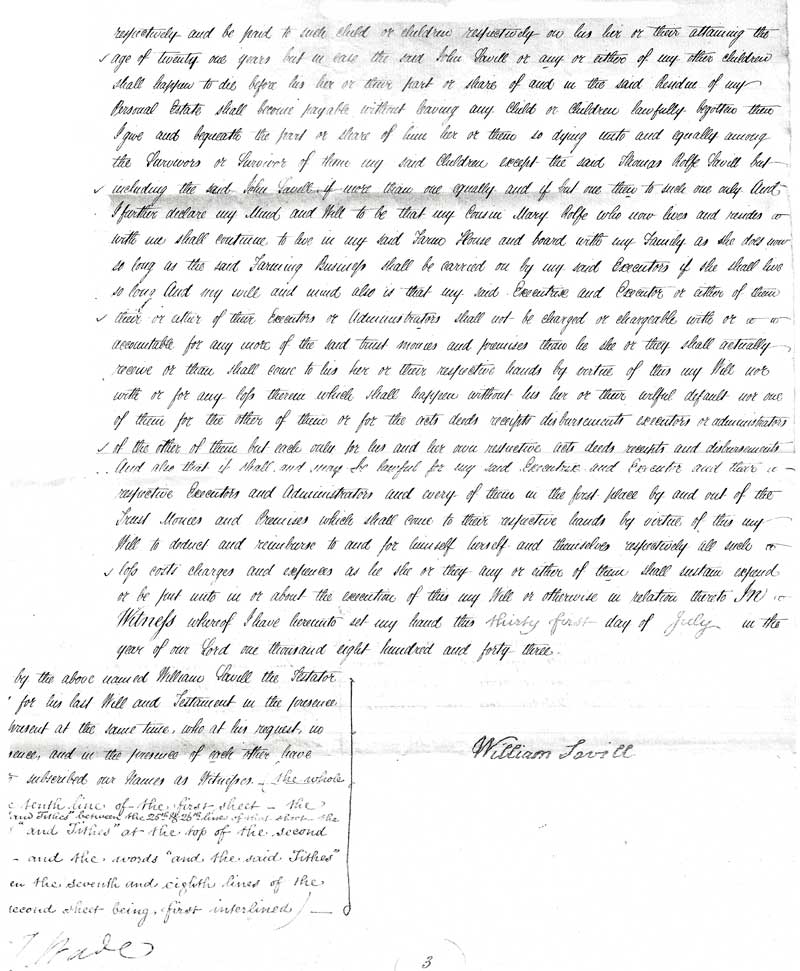 respectively and be paid to such child or children respectively on his her or their attaining the
age of twenty one years but in case the said John Savill or any or either of my other children
shall happen to die before his her or their part or share of and in the said Residue of my
Personal Estate shall become payable without leaving any Child or Children lawfully begotten then
I give and bequeath the part or share of him her or them so dying unto and equally among
the Survivors or Survivor of them my said Children except the said Thomas Rolfe Savill but
including the said John Savill if more than one equally and if but one then to such one only And
I further declare my Mind and Will to be that my Cousin Mary Rolfe who now lives and resides
with me shall continue to live in my said Farm House and board with my Family as she does now
so long as the said Farming Business shall be carried on by my said Executors if she shall live
so long And my will and mind also is that my said Executrix and Executor or either of them
their or either of their Executors or Administrators shall not be charged or chargeable with or
accountable for any more of the said trust monies and premises than he she or they shall actually
receive or than shall come to his her or their respective hands by virtue of this my Will nor
with or for any loss therein which shall happen without his her or their wilful default nor one
of them for the other of them or for the acts deeds receipts disbursements executors or administrators
of the other of them but each only for his and her own respective acts deeds receipts and disbursements
And also that it shall and may be lawful for my said Executrix and Executor and their
respective Executors and Administrators and every of them in the first place by and out of the
Trust Monies and Premises which shall come to their respective hands by virtue of this my
Will to deduct and reimburse to and for himself herself and themselves respectively all such
loss costs charges and expences as he she or they any or either of them shall sustain expend
or be put unto in or about the execution of this my Will or otherwise in relation thereto In
Witness whereof I have hereunto set my hand this thirty first day of July in the
year of our Lord one thousand eight hundred and forty three.
by the above named William Savill the Testator
for his last Will and Testament in the presence
present at the same time, who at his request, in
sence, and in the presence of each other have
subscribed our Names as Witnesses - the whole
tenth line of the first sheet - the
"and Tithes" between the 25th & 26th line of that sheet - the
"and Tithes" at the top of the second
- and the words "and the said Tithes"
en the seventh and eighth lines of the
second sheet being first interlined) -
William Savill
Wade
3